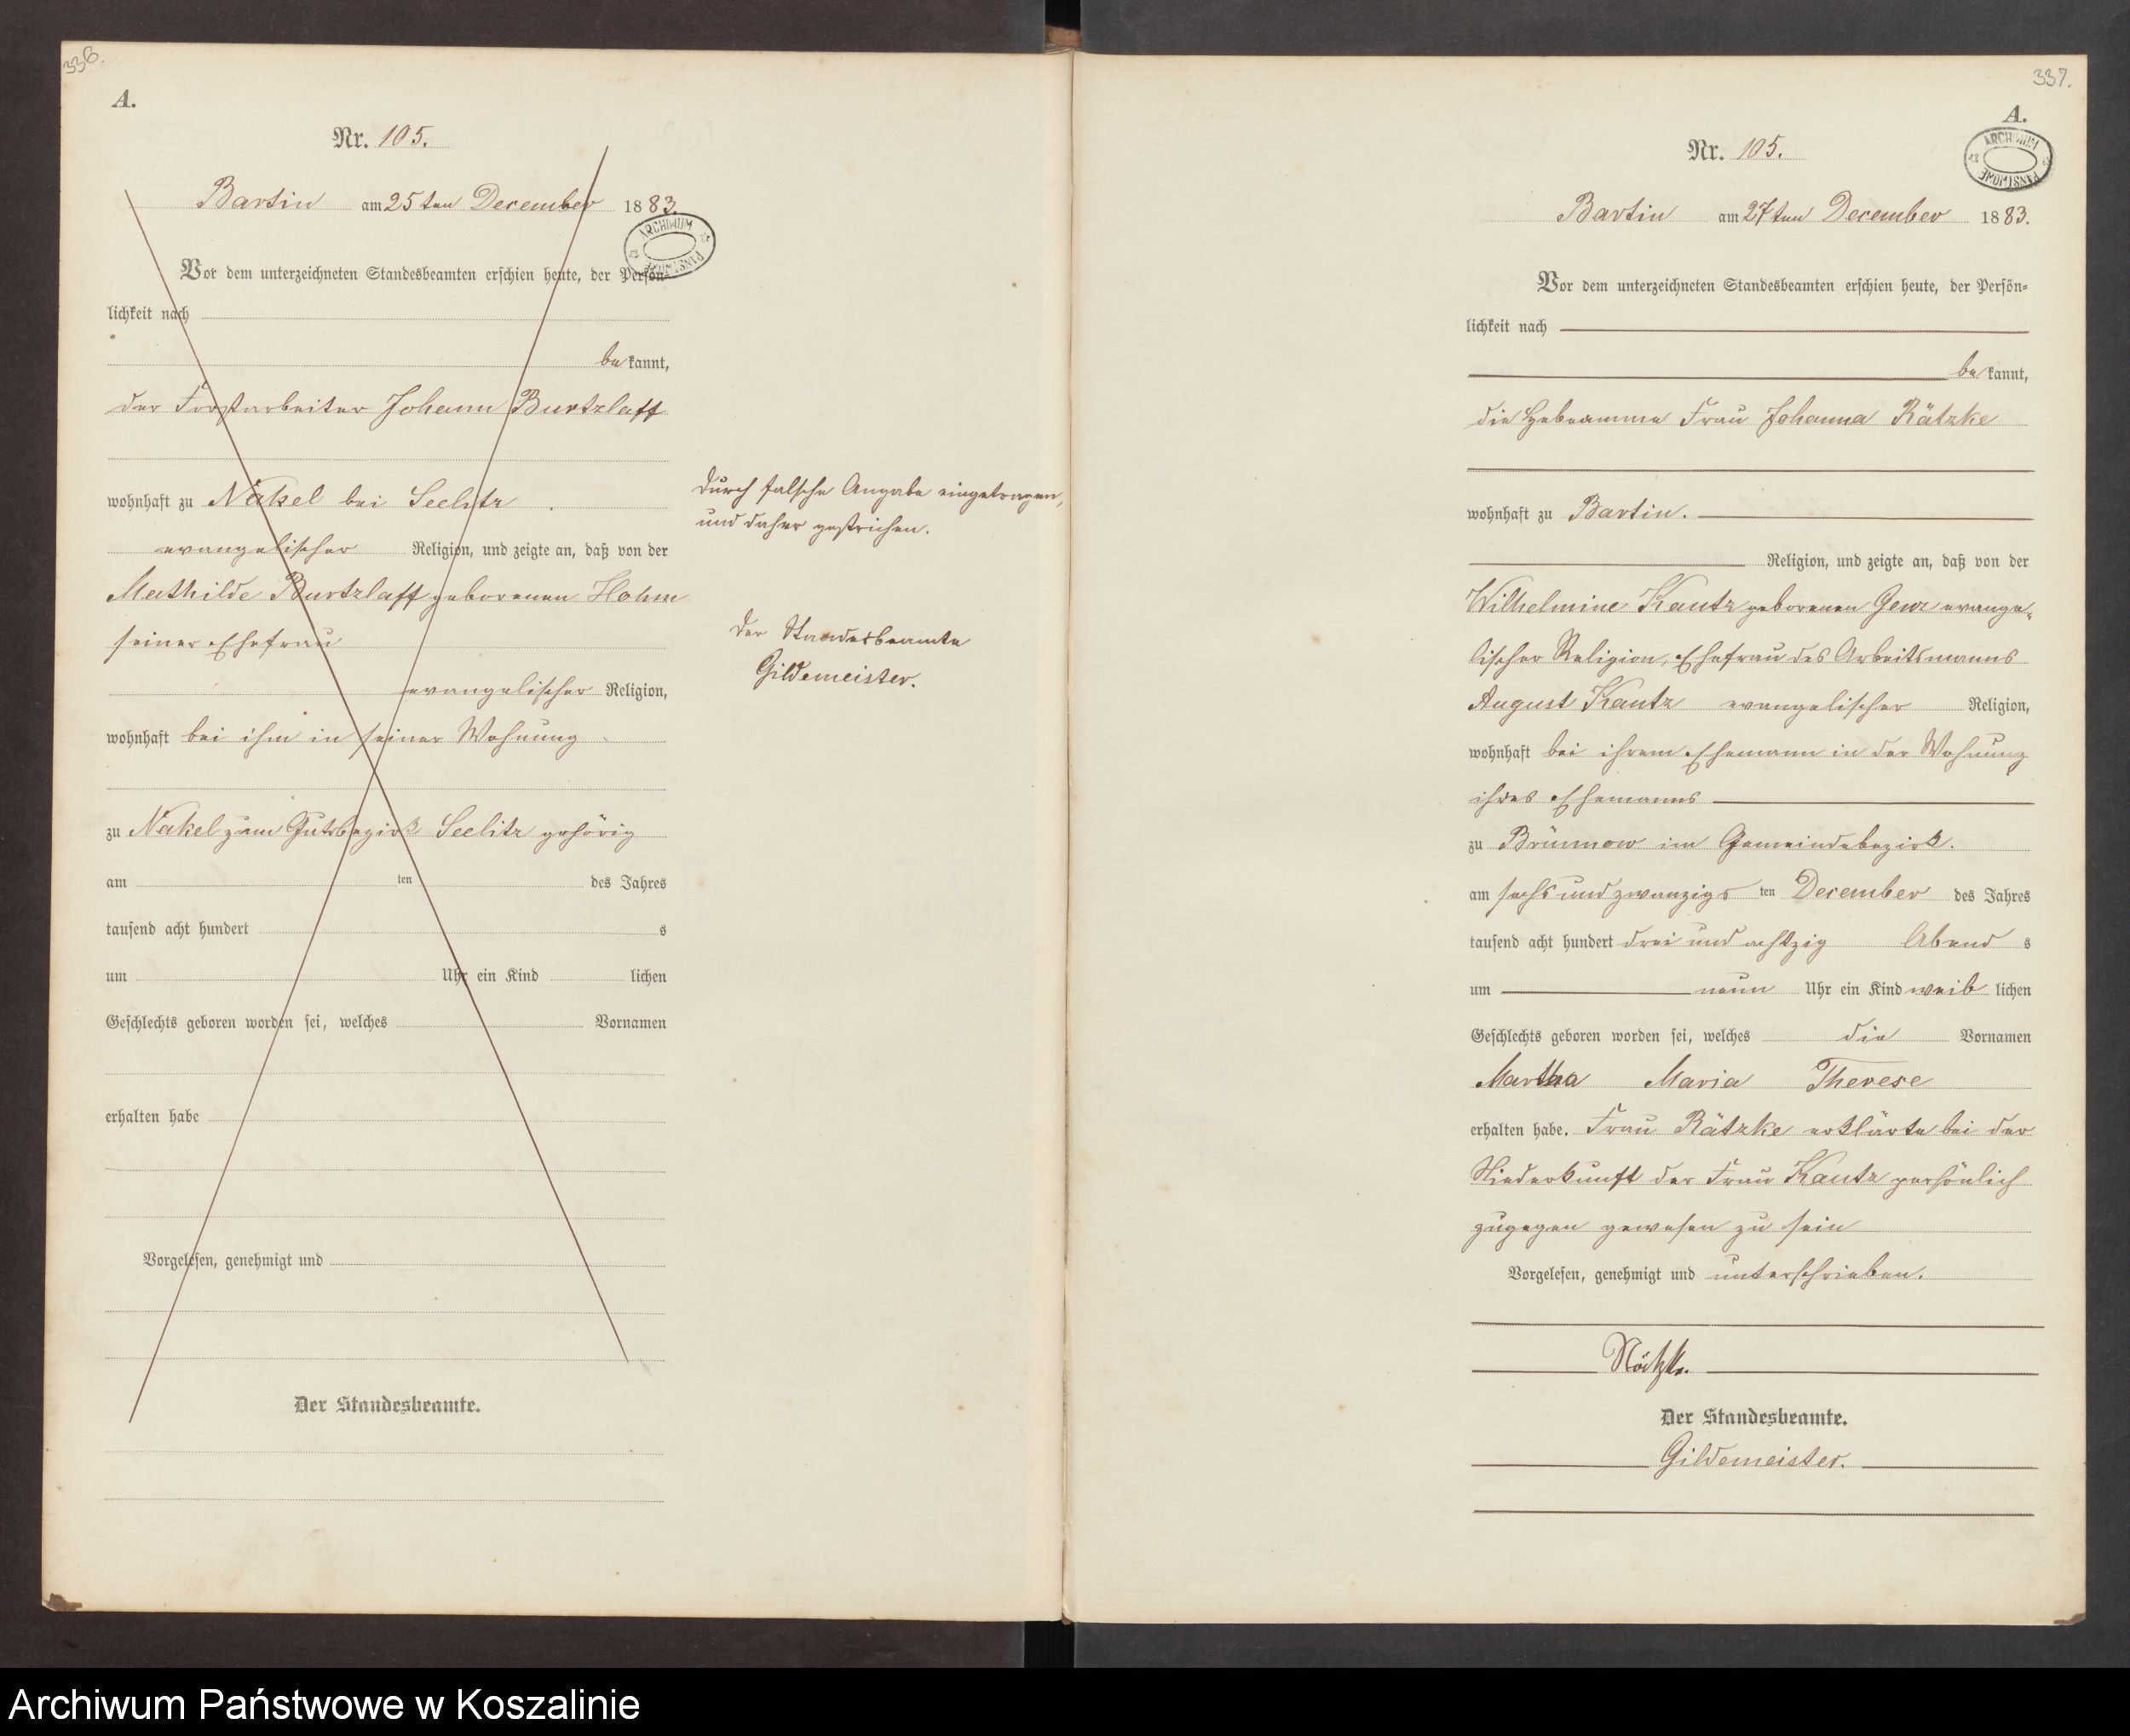 336.
A.
Nr. 105.
Bartin am 25ten December 1883.
ARCHIWUM PAŃSTWOWE
Vor dem unterzeichneten Standesbeamten erschien heute, der Persön-
lichkeit nach
bekannt,
der Forstarbeiter Johann Burtzlaff
wohnhaft zu Nakel bei Seelitz
evangelischer Religion, und zeigte an, daß von der
Mathilde Burtzlaff geborenen Hohm
seiner Ehefrau
evangelischer Religion,
wohnhaft bei ihm in seiner Wohnung
zu Nakel zum Gutsbezirk Seelitz gehörig
am ten des Jahres
tausend acht hundert s
um Uhr ein Kind lichen
Geschlechts geboren worden sei, welches Vornamen
erhalten habe
Vorgelesen, genehmigt und
Der Standesbeamte.
durch falsche Angabe eingetragen,
und daher gestrichen.
Der Standesbeamte
Gildemeister.
337.
A.
ARCHIWUM PAŃSTWOWE
Nr. 105.
Bartin am 27ten December 1883.
Vor dem unterzeichneten Standesbeamten erschien heute, der Persön=
lichkeit nach
bekannt,
die Hebeamme Frau Johanna Rätzke
wohnhaft zu Bartin.
Religion, und zeigte an, daß von der
Wilhelmine Kautz geborenen Genz evange-
lischer Religion, Ehefrau des Arbeitsmanns
August Kautz evangelischer Religion,
wohnhaft bei ihrem Ehemann in der Wohnung
ihres Ehemanns
zu Brünnow im Gemeindebezirk.
am sechs und zwanzigsten December des Jahres
tausend acht hundert drei und achtzig Abends
um neun Uhr ein Kind weiblichen
Geschlechts geboren worden sei, welches die Vornamen
Martha Maria Therese
erhalten habe. Frau Rätzke erklärte bei der
Niederkunft der Frau Kautz persönlich
zugegen gewesen zu sein
Vorgelesen, genehmigt und unterschrieben.
Rätzke.
Der Standesbeamte.
Gildemeister.
Archiwum Państwowe w Koszalinie